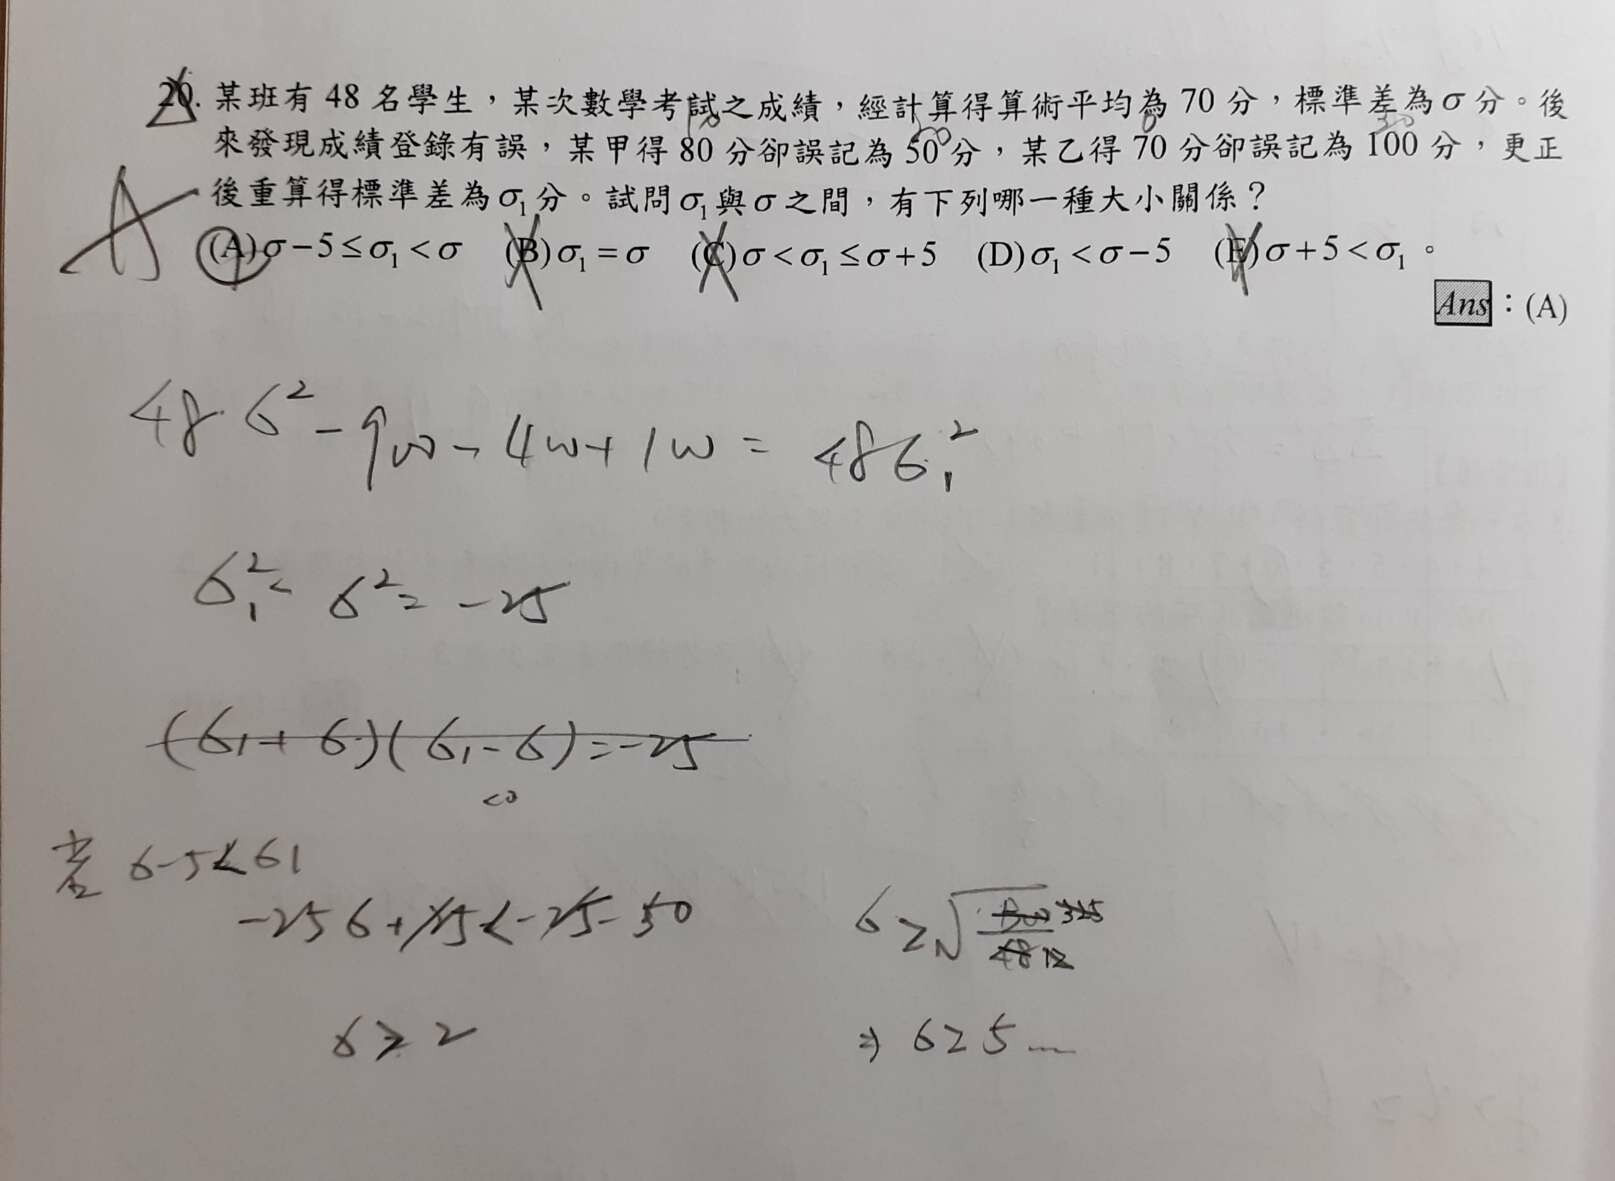 20. 某班有 48 名學生，某次數學考試之成績，經計算得算術平均為 70 分，標準差為σ分。後
來發現成績登錄有誤，某甲得 80 分卻誤記為 50 分，某乙得 70 分卻誤記為 100 分，更正
後重算得標準差為σ₁分。試問σ₁與σ之間，有下列哪一種大小關係？
(A)σ−5≤σ₁<σ (B)σ₁=σ (C)σ<σ₁≤σ+5 (D)σ₁<σ−5 (E)σ+5<σ₁。
Ans：(A)
A
48·σ² − 900 − 400 + 100 = 48σ₁²
σ₁² − σ² = −25
(σ₁+σ)(σ₁−σ)=−25
<0
若 σ−5<σ₁
σ ≥ √ 325 12
σ > 2
⇒ σ ≥ 5...